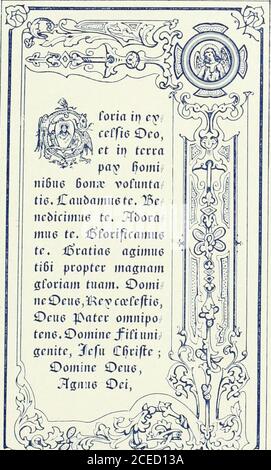 Gloria in ex/
celsis Deo,
et in terra
pax homi/
nibus bonæ volunta/
tis. Laudamus te. Be/
nedicimus te. Adora/
mus te. Glorificamus
te. Gratias agimus
tibi propter magnam
gloriam tuam. Domi/
ne Deus, Rex cœlestis,
Deus Pater omnipo/
tens. Domine Fili uni/
genite, Jesu Christe ;
Domine Deus,
Agnus Dei,
alamy
Image ID: 2CED13A
www.alamy.com